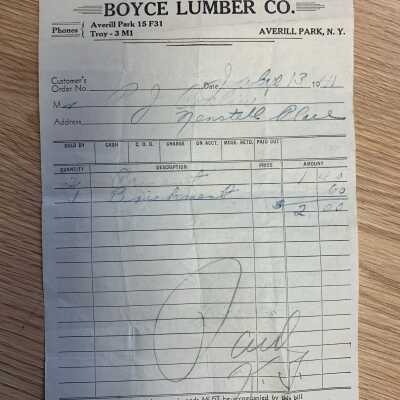 BOYCE LUMBER CO.
Phones { Averill Park 15 F31
Troy - 3 M1
AVERILL PARK, N. Y.
Customer's
Order No. Date July 13 1941
M J
Address Place
SOLD BY CASH C. O. D. CHARGE ON ACCT. MDSE. RETD. PAID OUT
QUANTITY DESCRIPTION PRICE AMOUNT
2 1 40
1 60
$ 2 00
Paid
be accompanied by this bill